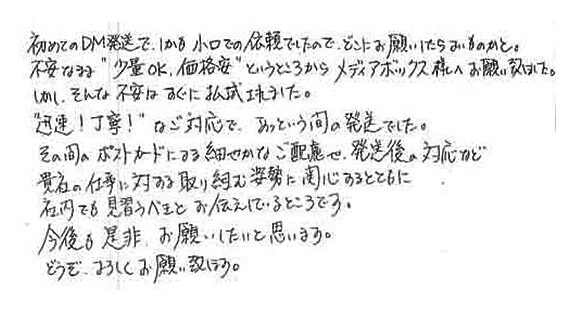 初めてのDM発送で、しかも小口での依頼でしたので、どこにお願いしたらよいものかと。
不安なまま"少量OK、価格安"というところからメディアボックス様へお願い致しました。
しかし、そんな不安はすぐに払拭されました。
"迅速！丁寧！"なご対応で、あっという間の発送でした。
その間のポストカードによる細やかなご配慮や、発送後の対応など
貴社の仕事に対する取り組む姿勢に関心するとともに
社内でも見習うべきとお伝えしているところです。
今後も是非、お願いしたいと思います。
どうぞ、よろしくお願い致します。